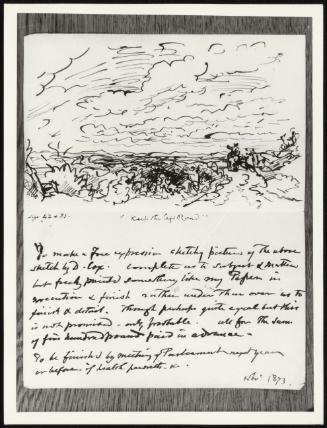 "Keep the left Road"
To make a free expression sketchy picture of the above
sketch by D. Cox. Complete as to subject & matter
but freely painted something like my
execution & finish rather under than over as to
finish & detail. Though perhaps quite equal but this
is not promised - only probable. all for the sum
of five hundred pounds paid in advance -
To be finished by meeting of Parliament next year
or before if health permits.
Novr 1873